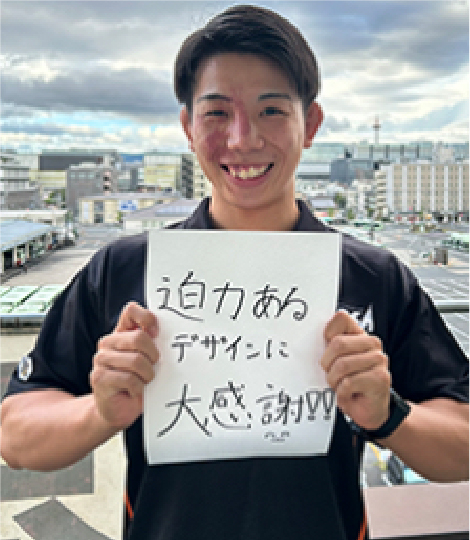 迫力ある
デザインに
大感謝!!